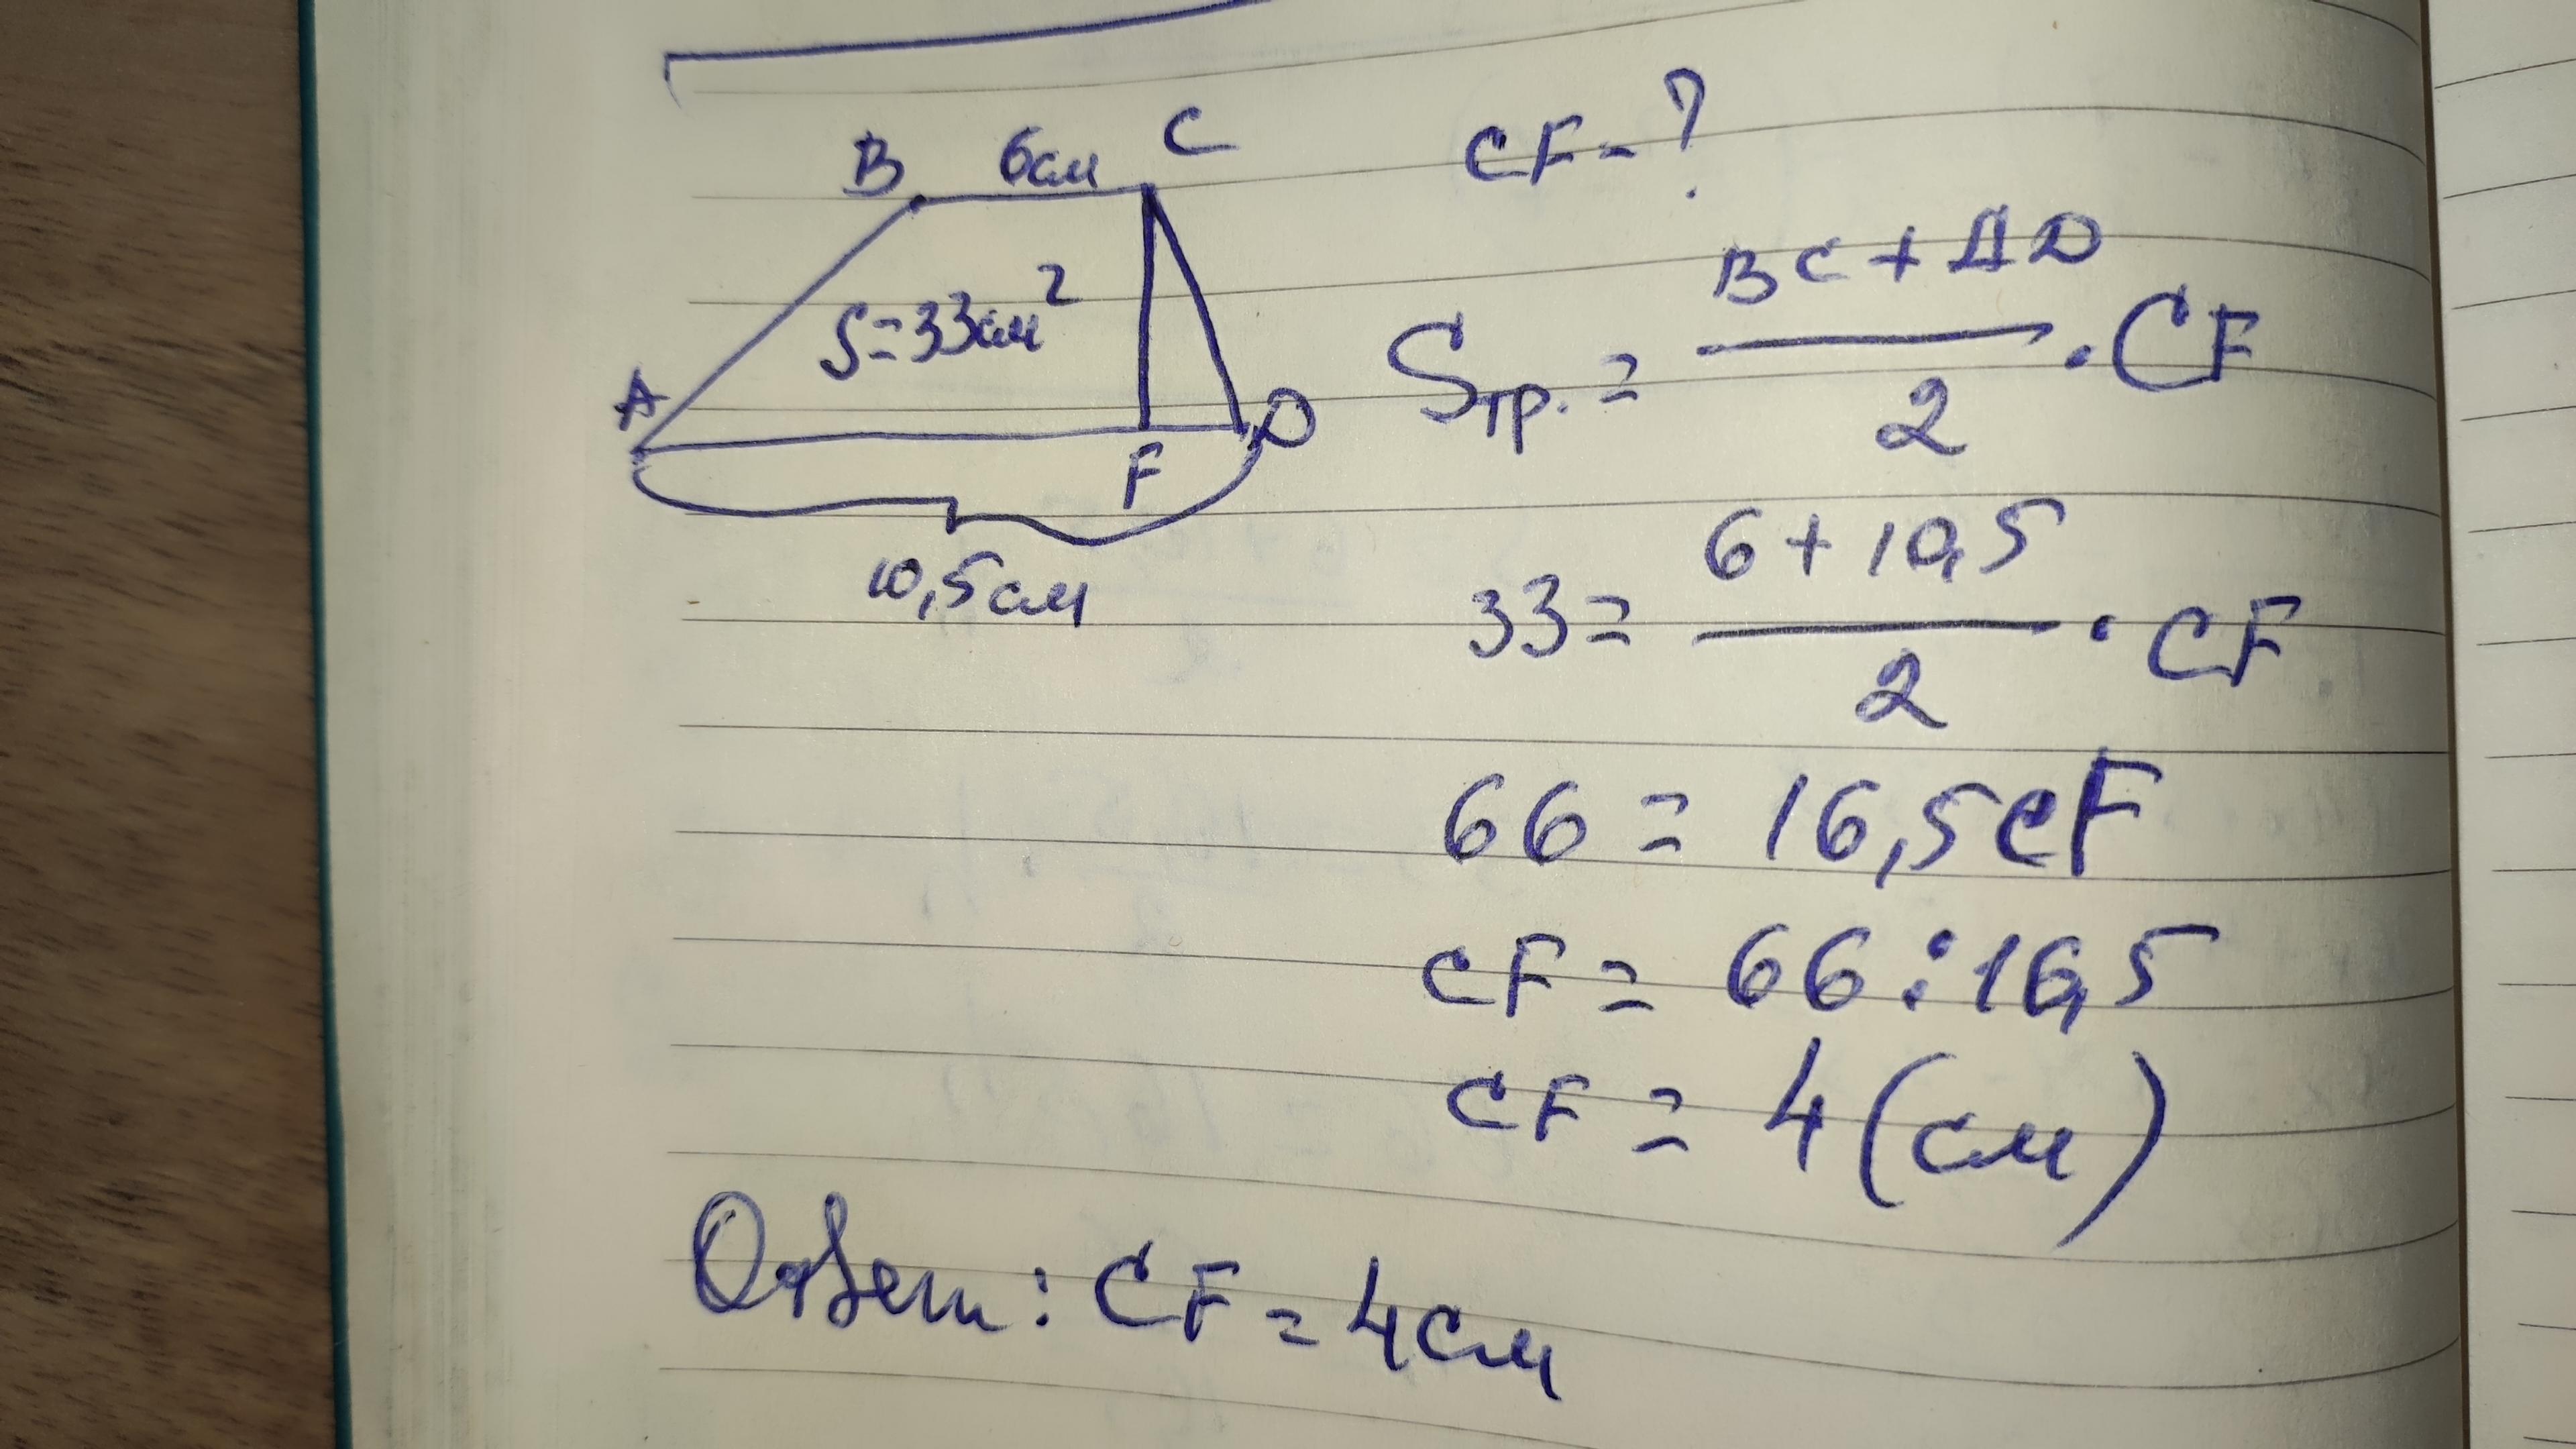 B 6см C
S=33см²
A
D
F
10,5см
CF-?
Sтр. = BC + AD / 2 · CF
33 = 6 + 10,5 / 2 · CF
66 = 16,5CF
CF = 66 : 16,5
CF = 4 (см)
Ответ: CF = 4см